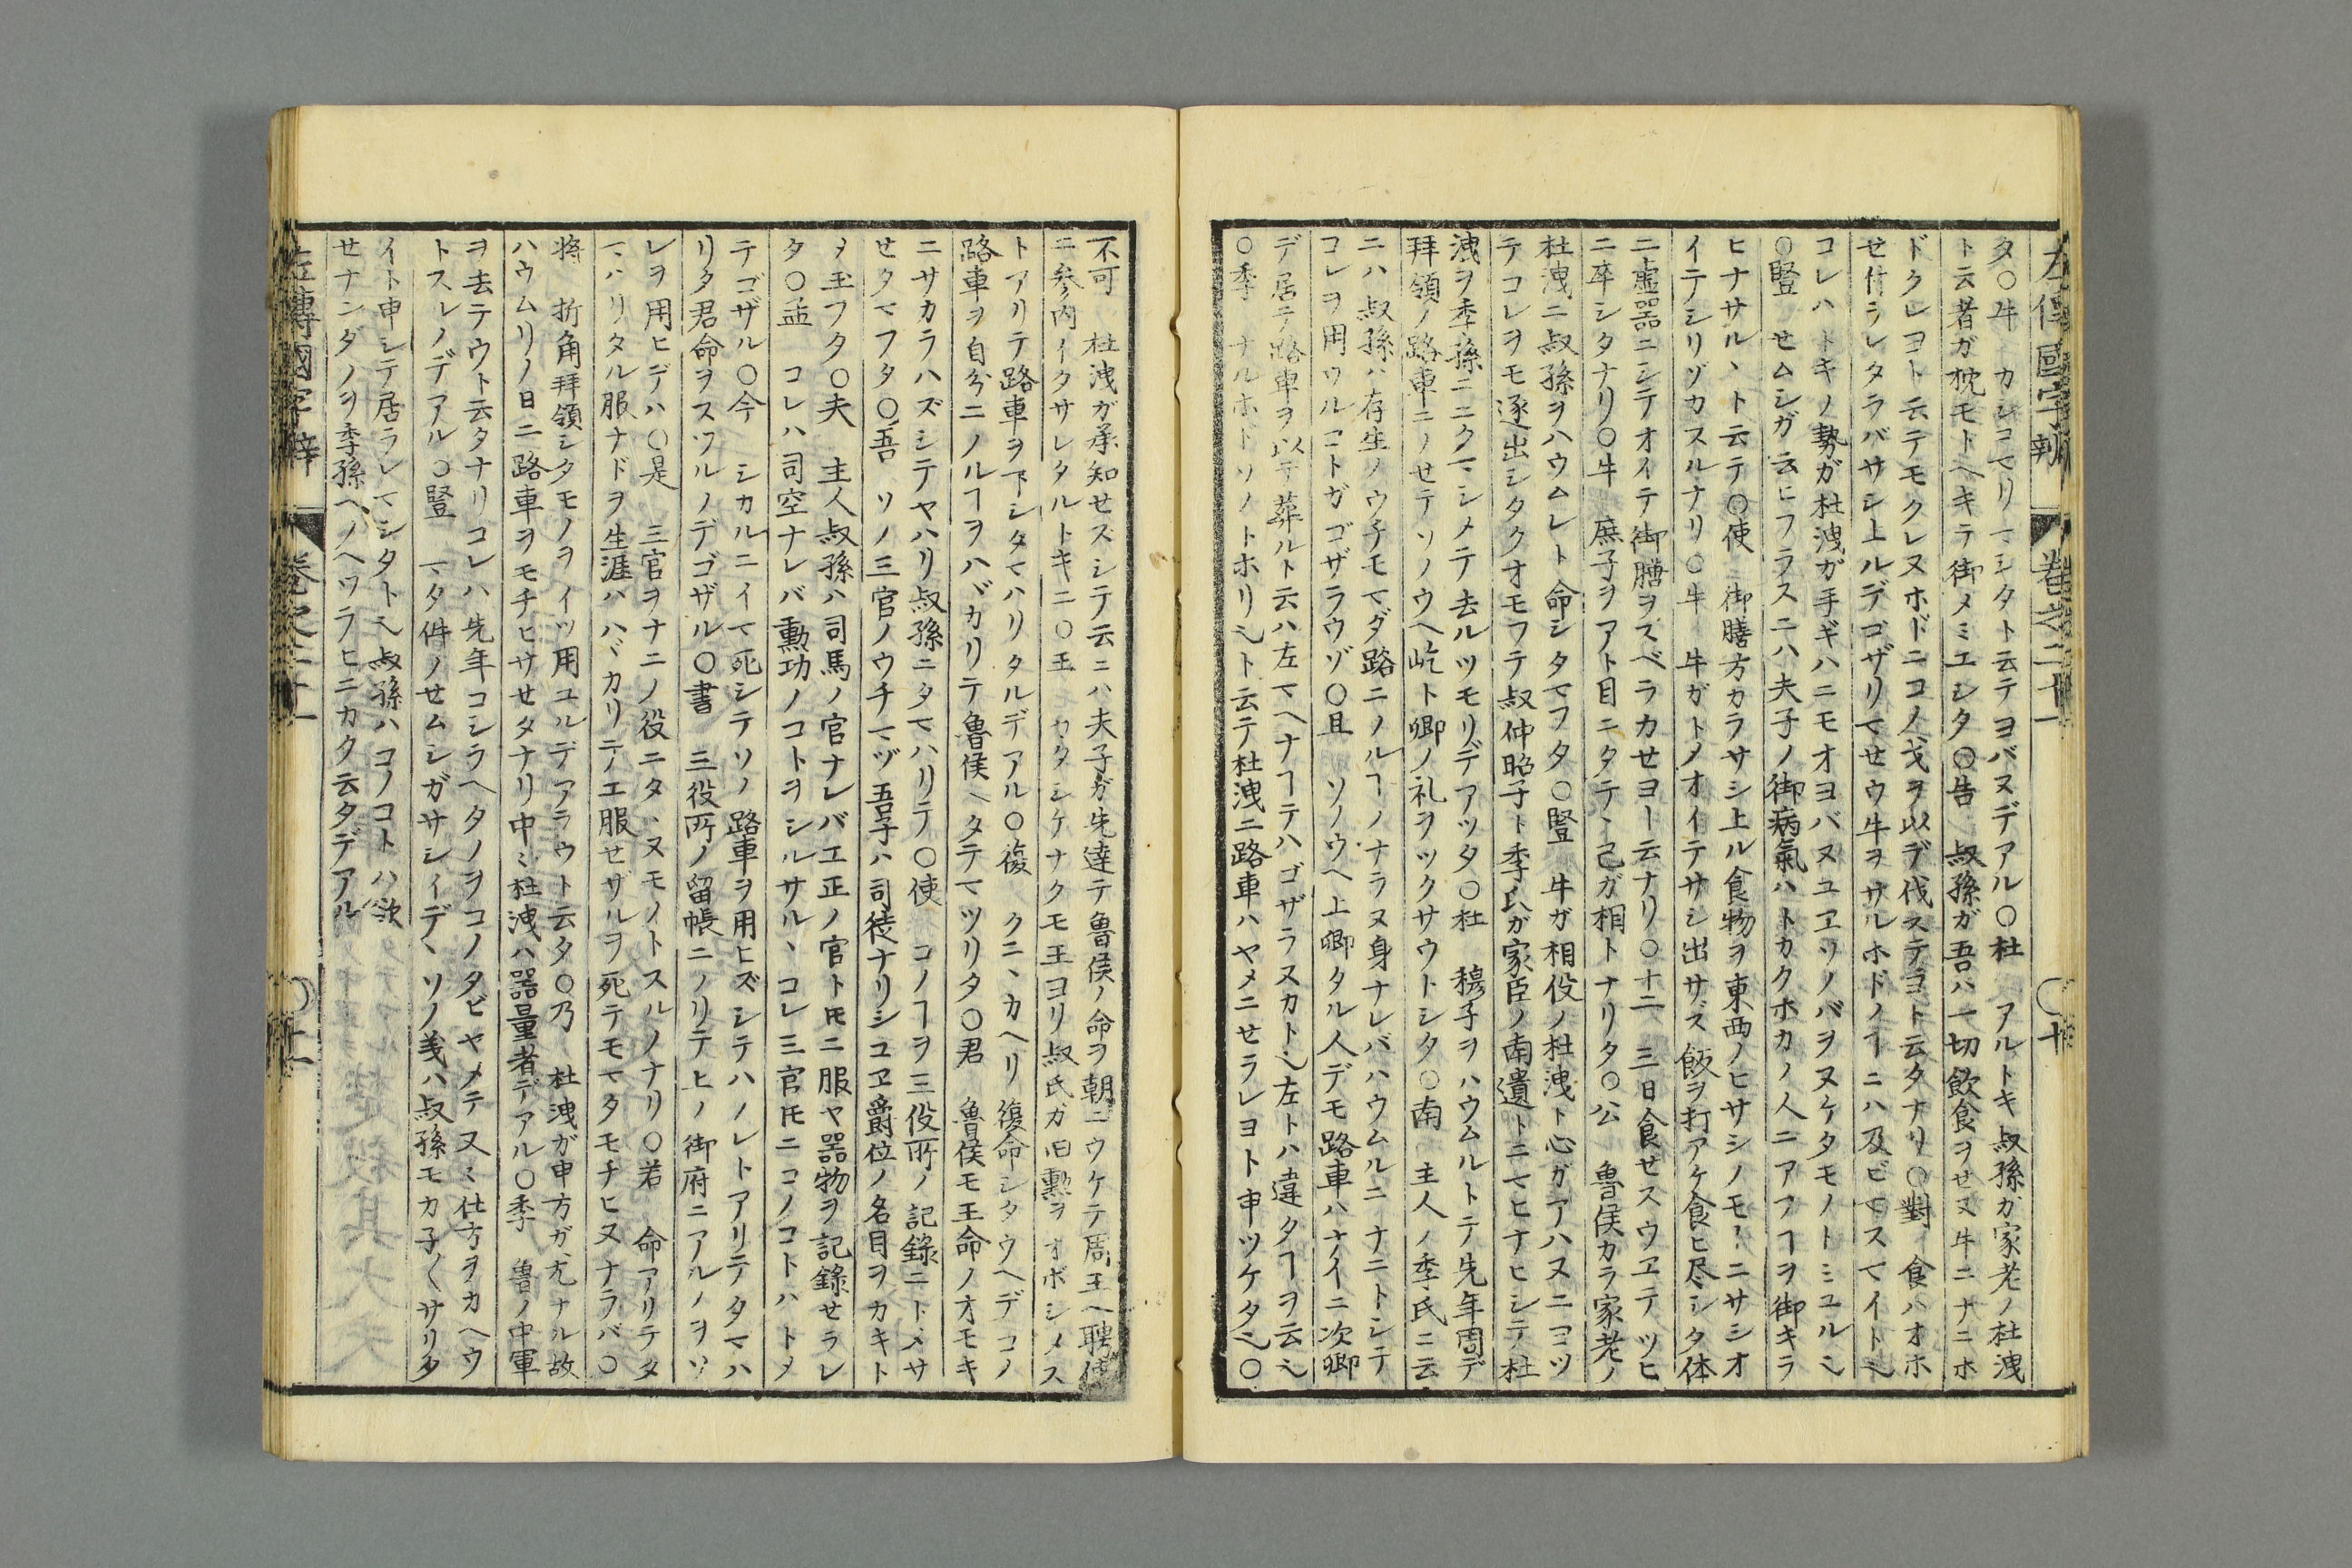 左傳國字辨 卷之二十一 〇十
タ〇牛 カシコマリマシタト云テヨバヌデアル〇杜 アルトキ叔孫ガ家老ノ杜洩
ト云者ガ枕モトヘキテ御メミエシタ〇告 叔孫ガ吾ハ一切飲食ヲセヌ牛ニナニホ
ドクレヨト云テモクレヌホドニコノ戈ヲ以デ伐ステヨト云タナリ〇對 食ハオホ
セ付ラレタラバサシ上ルデゴザリマセウ牛ヲサルホドノヿニハ及ビマスマイトヘ
コレハトキノ勢ガ杜洩ガ手ギハニモオヨバヌユヱソノバヲヌケタモノトミユルヘ
〇豎 せムシガ云ヒフラスニハ夫子ノ御病氣ハトカクホカノ人ニアフヿヲ御キラ
ヒナサルヽト云テ〇使 御膳方カラサシ上ル食物ヲ東西ノヒサシノモニサシオ
イテシリゾカスルナリ〇牛 牛ガトメオイテサシ出サズ飯ヲ打アケ食ヒ尽シタ体
ニ虚器ニシテオイテ御膳ヲスベラカせヨト云ナリ〇十二 三日食せスウヱテツヒ
ニ卒シタナリ〇牛 庶子ヲアト目ニタテヽ己ガ相トナリタ〇公 魯侯カラ家老ノ
杜洩ニ叔孫ヲハウムレト命シタマフタ〇豎 牛ガ相役ノ杜洩ト心ガアハヌニヨツ
テコレヲモ逐出シタクオモフテ叔仲昭子ト季氏ガ家臣ノ南遺トニマヒナヒシテ杜
洩ヲ季孫ニニクマシメテ去ルツモリデアツタ〇杜 穆子ヲハウムルトテ先年周デ
拜領ノ路車ニノせテソノウヘ屹ト卿ノ礼ヲツクサウトシタ〇南 主人ノ季氏ニ云
ニハ叔孫ハ存生ノウチモマダ路ニノルヿノナラヌ身ナレバハウムルニナニトシテ
コレヲ用ウルコトガゴザラウゾ〇且 ソノウヘ上卿タル人デモ路車ハナイニ次卿
デ居テ路車ヲ以テ葬ルト云ハ左マヘナヿテハゴザラヌカトヘ左トハ違タヿヲ云ヘ
〇季 ナルホトソノトホリヘト云テ杜洩ニ路車ハヤメニせラレヨト申ツケタヘ〇
不可 杜洩ガ承知せズシテ云ニハ夫子ガ先達テ魯侯ノ命ヲ朝ニウケテ周王ヘ聘使
ニ參内イタサレタルトキニ〇王 カタシケナクモ王ヨリ叔氏ガ旧勲ヲオボシメス
トアリテ路車ヲ下シタマハリタルデアル〇復 クニヽカヘリ復命シタウヘデコノ
路車ヲ自分ニノルヿヲハバカリテ魯侯ヘタテマツリタ〇君 魯侯モ王命ノオモキ
ニサカラハズシテヤハリ叔孫ニタマハリテ〇使 コノヿヲ三役所ノ記録ニトメサ
せタマフタ〇吾 ソノ三官ノウチマヅ吾子ハ司徒ナリシユヱ爵位ノ名目ヲカキト
メ玉フタ〇夫 主人叔孫ハ司馬ノ官ナレバ工正ノ官トモニ服ヤ器物ヲ記録せラレ
タ〇孟 コレハ司空ナレバ勳功ノコトヲシルサルヽコレ三官トモニコノコトハトメ
テゴザル〇今 シカルニイマ死シテソノ路車ヲ用ヒズシテハノレトアリテタマハ
リタ君命ヲスツルノデゴザル〇書 三役所ノ留帳ニノリテ上ノ御府ニアルノヲソ
レヲ用ヒデハ〇是 三官ヲナニノ役ニタヽヌモノトスルノナリ〇若 命アリテタ
マハリタル服ナドヲ生涯ハハバカリテノエ服せザルヲ死テモマタモチヒヌナラバ〇
將 折角拜領シタモノヲイツ用ユルデアラウト云タ〇乃 杜洩ガ申方ガ尤ナル故
ハウムリノ日ニ路車ヲモチヒサせタナリ中ミ杜洩ハ器量者デアル〇季 魯ノ中軍
ヲ去テウト云タナリコレハ先年コシラヘタノヲコノタビヤメテ又ミ仕方ヲカヘウ
トスレノデアル〇豎 マタ件ノせムシガサシイデヽソノ義ハ叔孫モカ子〱サリタ
イト申シテ居ラレマシタトヘ叔孫ハコノコトハ欲
せナンダノヲ季孫ヘノヘツラヒニカク云タデアル
左傳國字辨 卷之二十一 〇十一